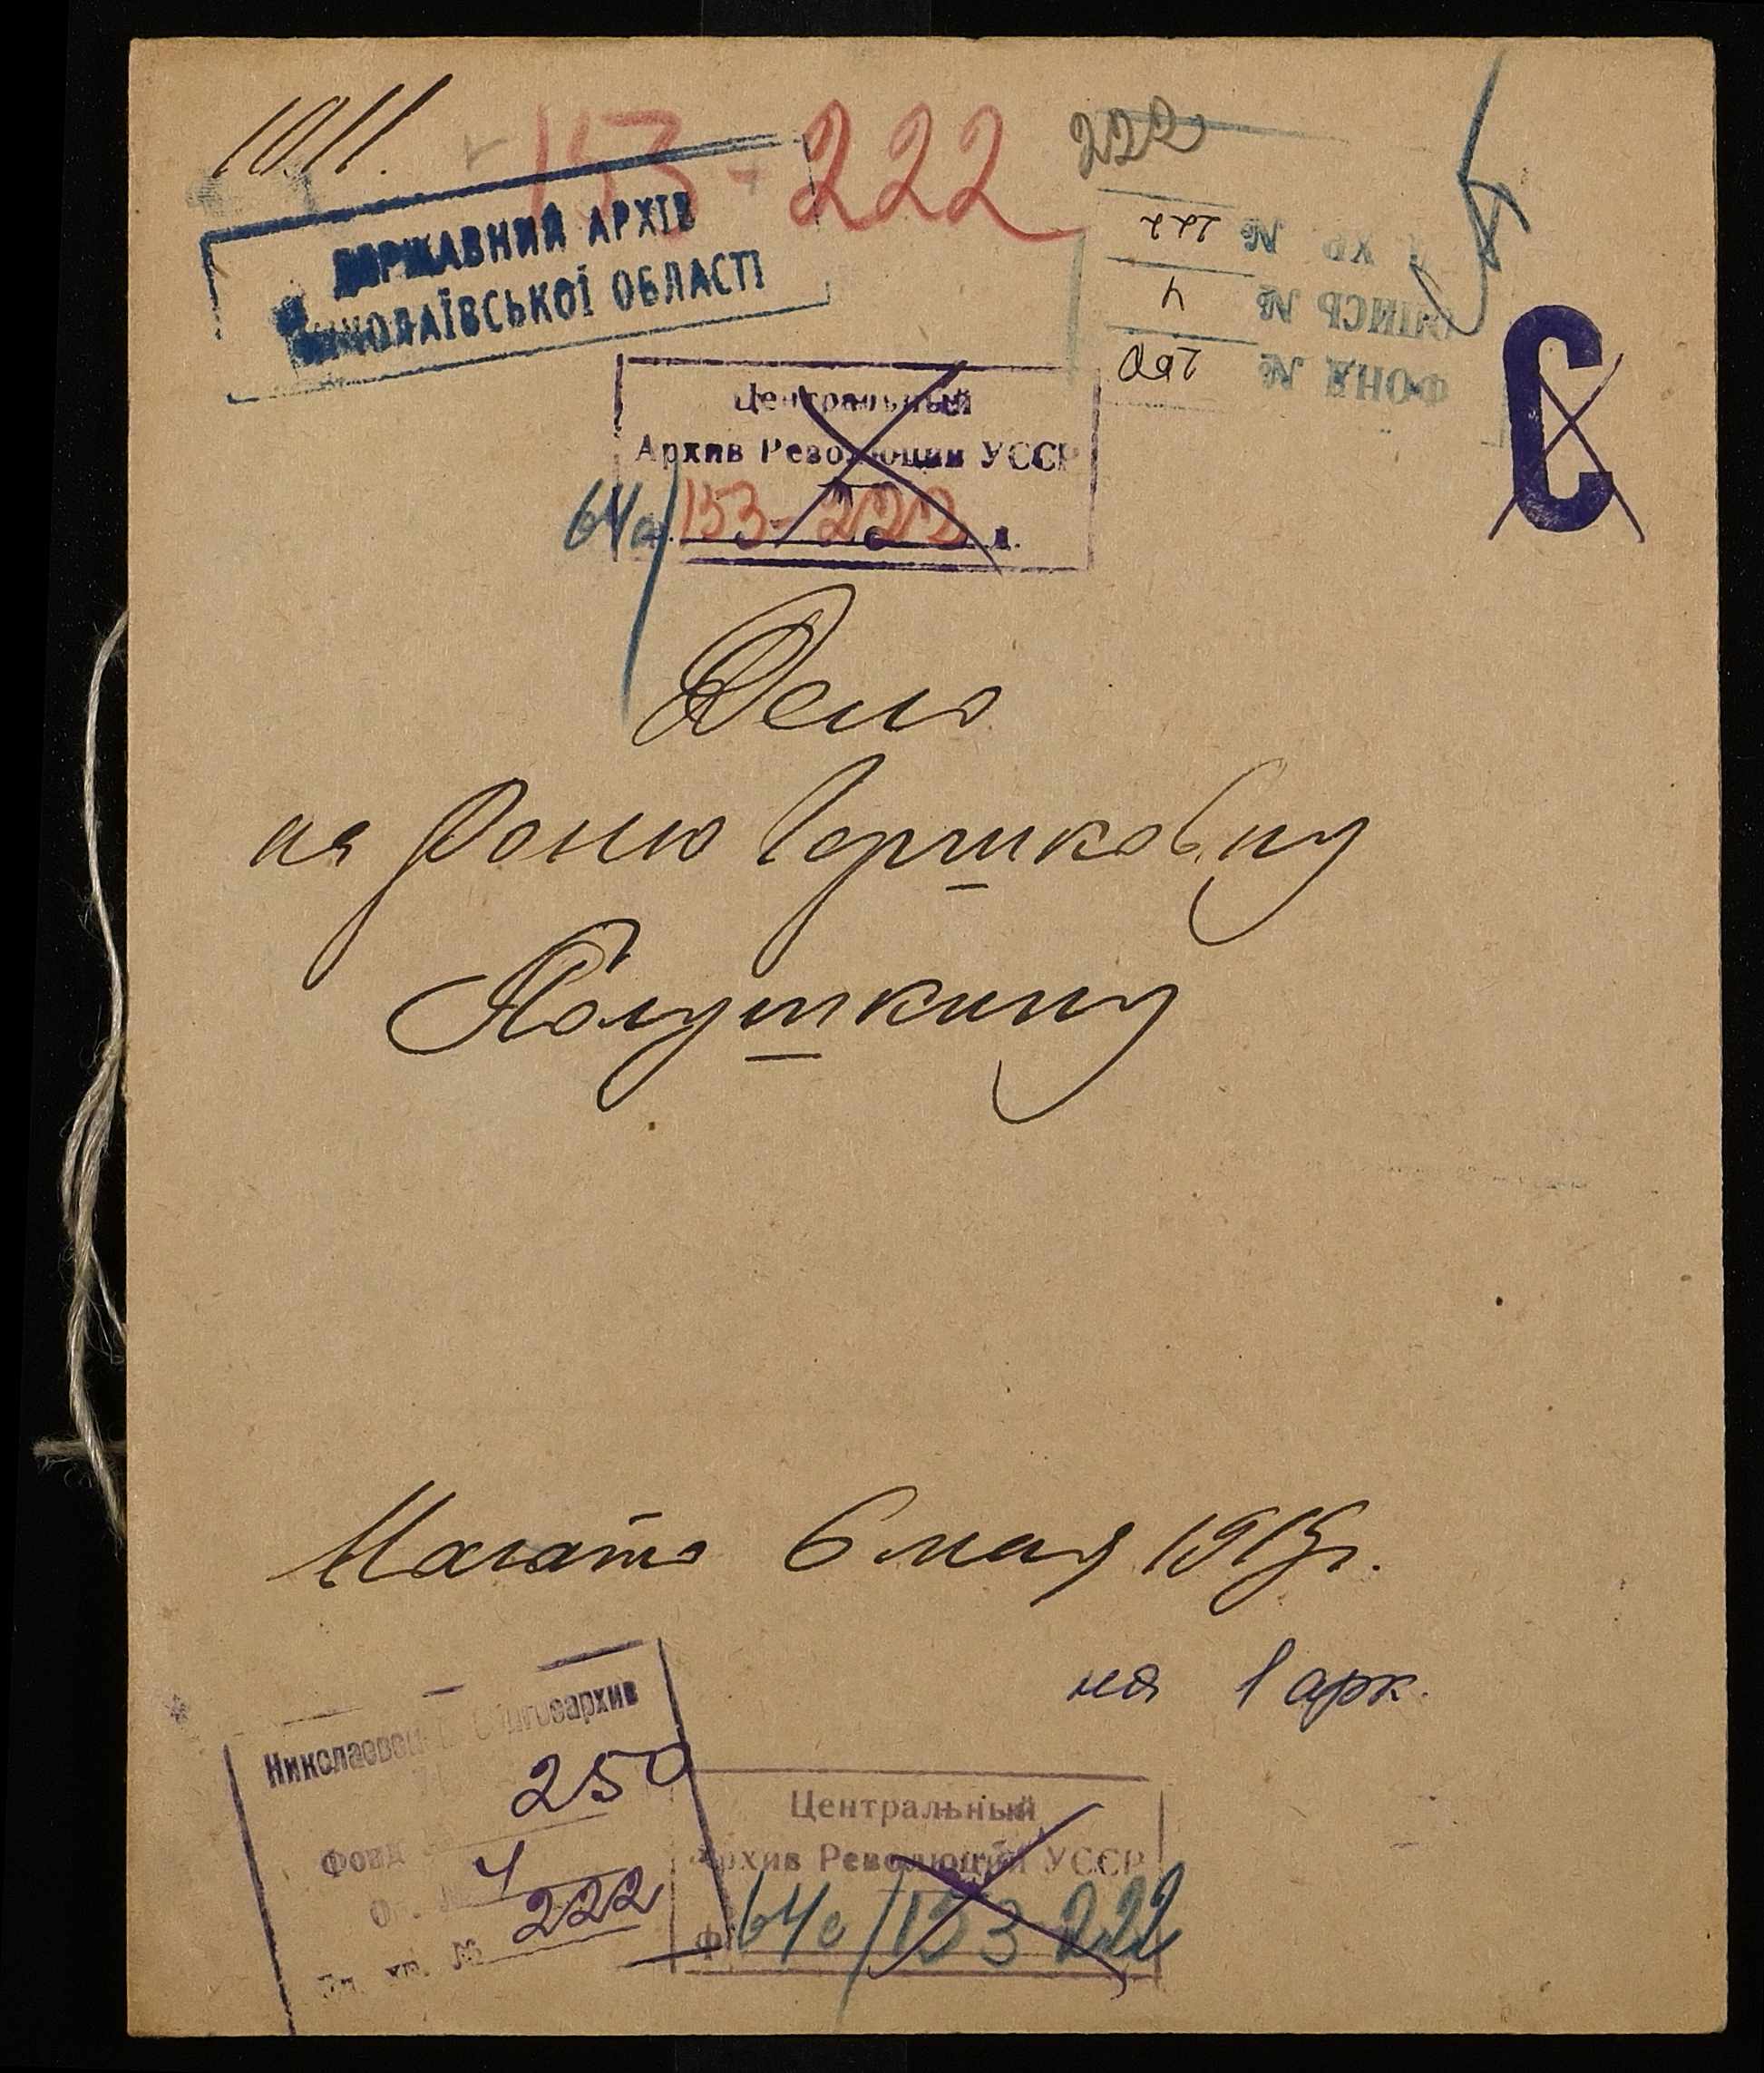 1011.
153-222
222
ДЕРЖАВНИЙ АРХІВ
МИКОЛАЇВСЬКОЇ ОБЛАСТІ
ФОНД № 250
ОПИСЬ № 4
ХР № 222
С
Центральный
Архив Революции УССР
64с/153-222 д.
Дело
на Роню Гершковну
Полушкину
Начато 6 мая 1915 г.
на 1 арк.
Николаевский Облгосархив
Фонд № 250
Оп. № 4
Ед. хр. № 222
Центральный
Архив Революции УССР
Ф 64с/153 222